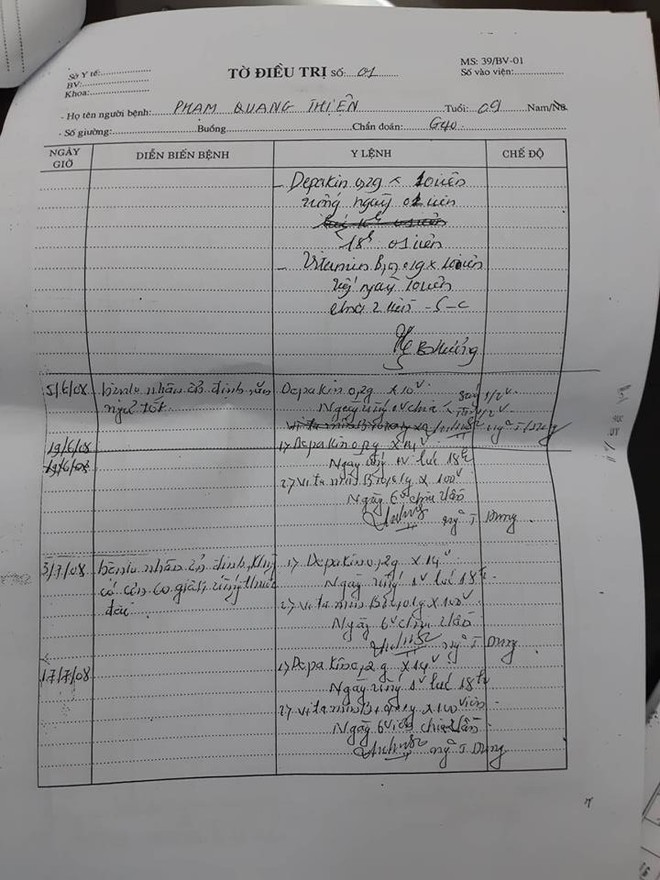 Sở Y tế:
BV:
Khoa:
TỜ ĐIỀU TRỊ SỐ: 01
MS: 39/BV-01
Số vào viện:
- Họ tên người bệnh: PHẠM QUANG THIỆN Tuổi: 09 Nam/Nữ
- Số giường: Buồng Chẩn đoán: G40
NGÀY GIỜ
DIỄN BIẾN BỆNH
Y LỆNH
CHẾ ĐỘ
- Depakin 0,2g x 10 viên
uống ngày 01 viên
18h 01 viên
- Vitamin B1 0,01g x 100 viên
uống ngày viên
chia 2 lần - S - C
5/6/08 bệnh nhân ổn định, ăn
ngủ tốt
Depakin 0,2g x 10v
Ngày uống 1v chia
19/6/08
19/6/08
1) Depakin 0,2g x 14v
Ngày uống 1v lúc 18h
2) vitamin B1 0,01g x 100v
Ngày 6v chia 2 lần
T Dung
3/7/08 bệnh nhân ổn định, không
có cơn co giật, uống thuốc
đều
1) Depakin 0,2g x 14v
Ngày uống 1v lúc 18h
2) vitamin B1 0,01g x 100v
Ngày 6v chia 2 lần
T Dung
17/7/08
1) Depakin 0,2g x 14v
Ngày uống 1v lúc 18h
2) vitamin B1 0,01g x 100 viên
Ngày 6 viên chia 2 lần
T Dung